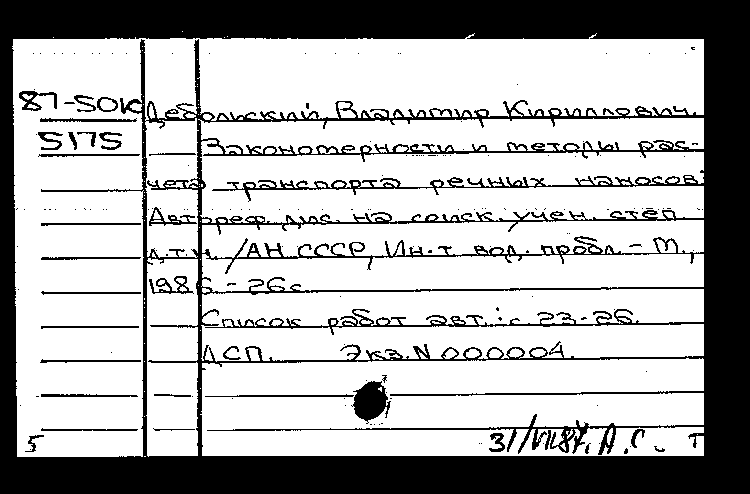 87-50к Дебольский, Владимир Кириллович.
5175 Закономерности и методы рас-
чета транспорта речных наносов:
Автореф. дис. на соиск. учен. степ
д.т.н. /АН СССР, Ин-т вод. пробл. - М.,
1986 - 26с
Список работ авт.: с. 23-26.
ДСП. Экз. N 000004.
5 31/VII87. А.С. Т